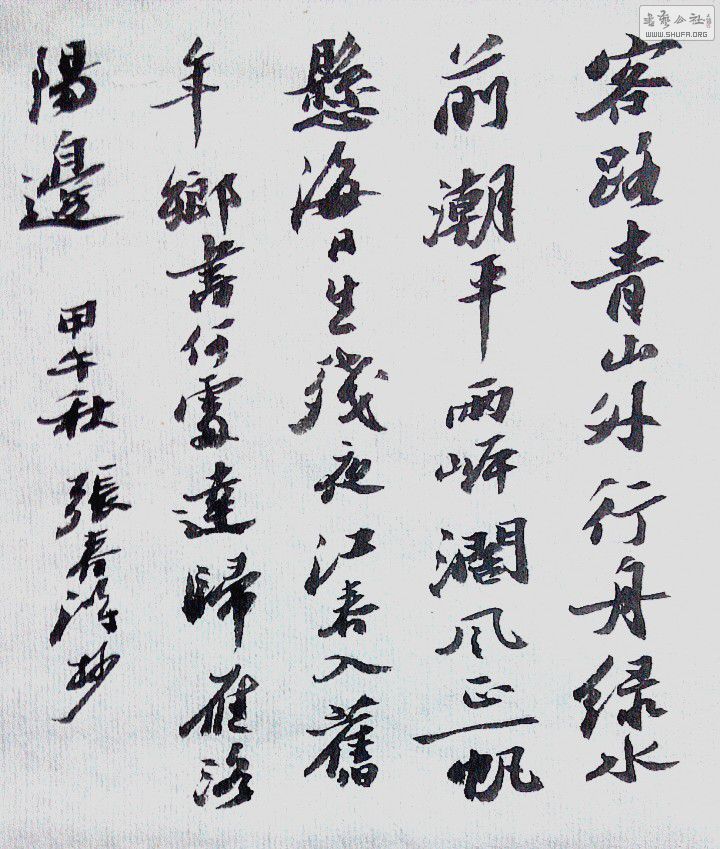 書藝公社
WWW.SHUFA.ORG
客路青山外行舟绿水
前潮平兩岸濶风正一帆
懸海日生殘夜江春入舊
年鄉書何處達歸雁洛
陽邊 甲午秋 張春抄